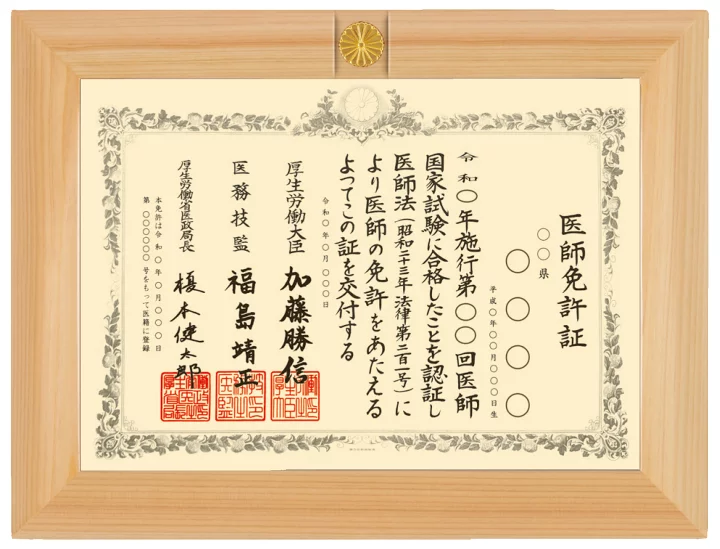 医師免許証
〇〇県
〇〇〇〇
平成〇年〇〇月〇〇〇日生
令和〇年施行第〇〇回医師
国家試験に合格したことを認証し
医師法(昭和二十三年法律第二百一号)に
より医師の免許をあたえる
よってこの証を交付する
令和〇年〇月〇〇〇日
厚生労働大臣 加藤勝信
医務技監 福島靖正
厚生労働省医政局長 榎本健太郎
本免許は令和〇年〇月〇〇〇日
第〇〇〇〇〇〇号をもって医籍に登録